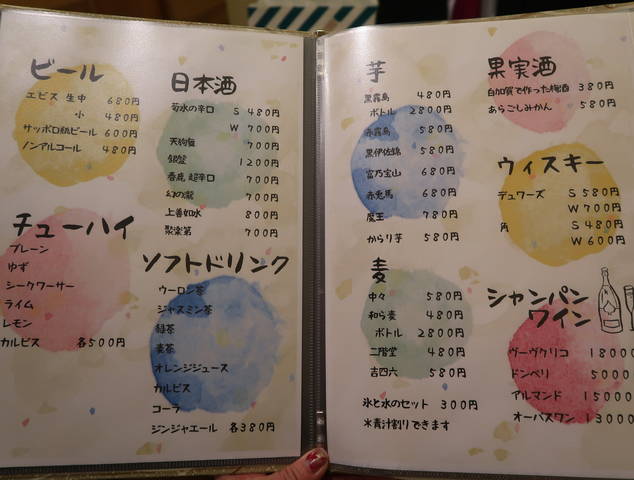 ビール
エビス 生中 680円
小 480円
サッポロ瓶ビール 600円
ノンアルコール 480円
チューハイ
プレーン
ゆず
シークワーサー
ライム
レモン
カルピス 各500円
日本酒
菊水の辛口 S 480円
W 700円
天狗舞 700円
銀盤 1200円
春鹿 超辛口 700円
幻の瀧 700円
上善如水 800円
聚楽第 700円
ソフトドリンク
ウーロン茶
ジャスミン茶
緑茶
麦茶
オレンジジュース
カルピス
コーラ
ジンジャエール 各380円
芋
黒霧島 480円
ボトル 2800円
赤霧島 580円
黒伊佐錦 580円
富乃宝山 680円
赤兎馬 680円
魔王 780円
からり芋 580円
麦
中々 580円
和ら麦 480円
ボトル 2800円
二階堂 480円
吉四六 580円
氷と水のセット 300円
*青汁割りできます
果実酒
自加賀で作った梅酒 380円
あらごしみかん 580円
ウィスキー
デュワーズ S 580円
W 700円
角 S 480円
W 600円
シャンパン
ワイン
ヴーヴクリコ 18000
ドンペリ 5000
アルマンド 15000
オーパスワン 13000